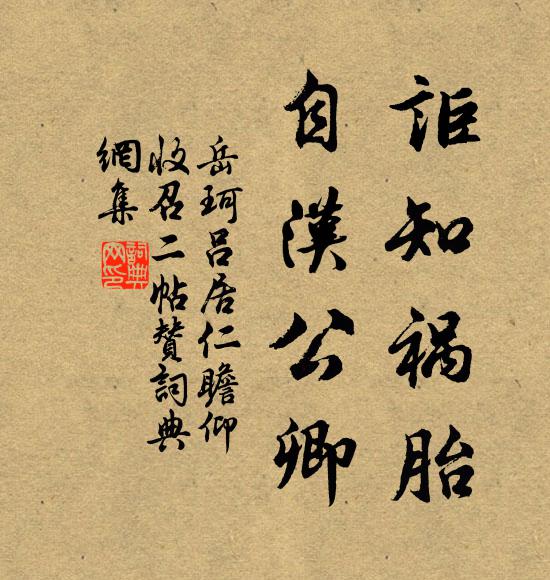 詎知祸胎
自漢公卿
岳珂吕居仁瞻仰
收召二帖贊詞典
網集
詞典網印